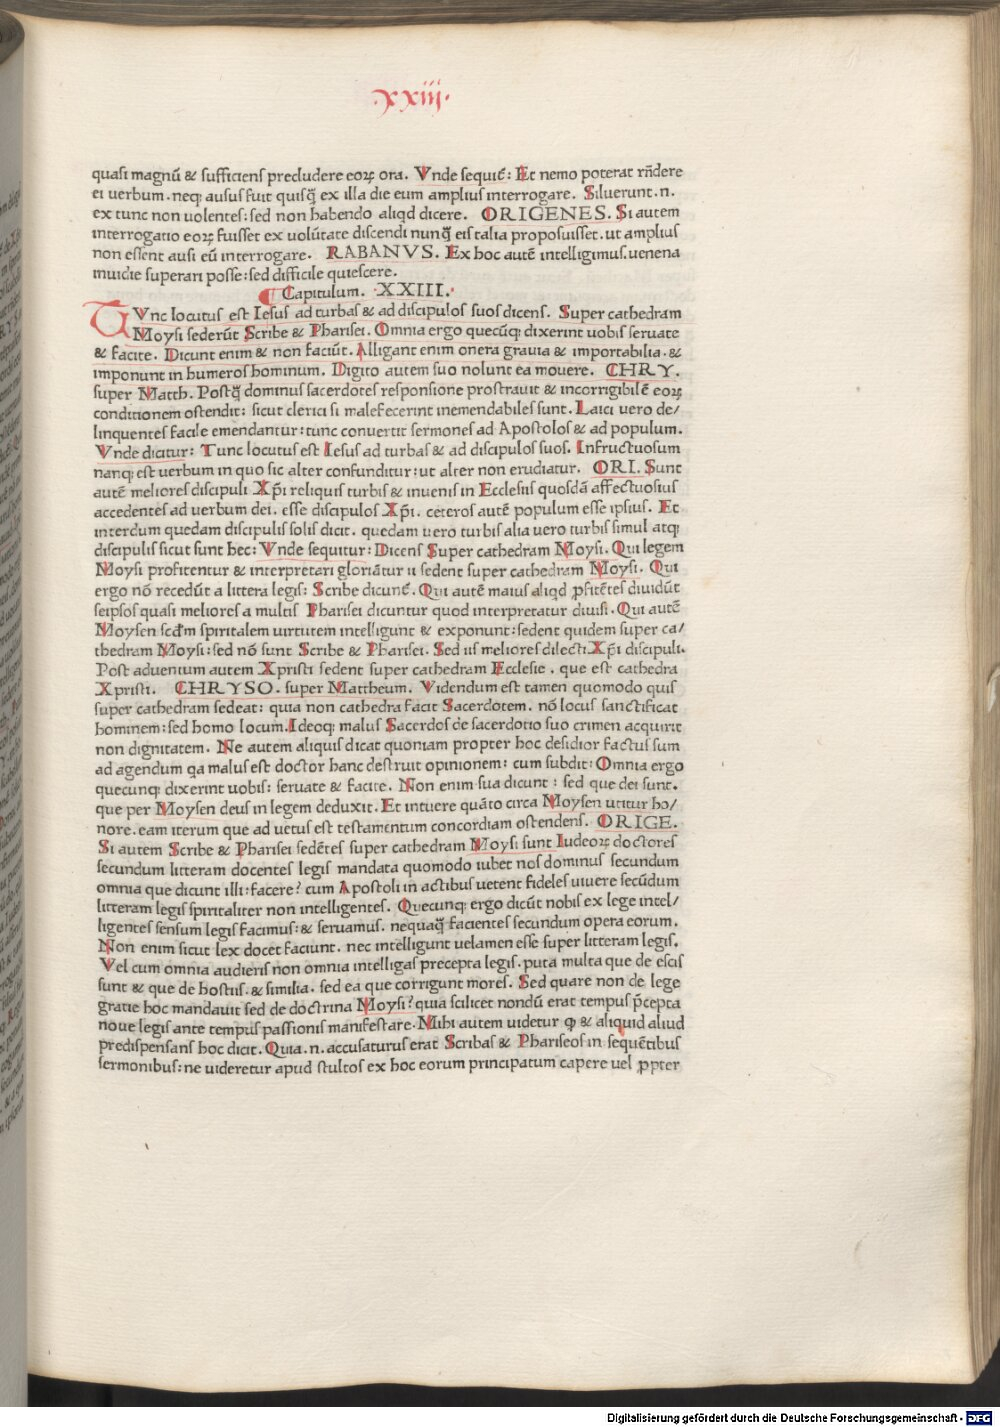 xxiij.
quasi magnũ & sufficiens precludere eoꝝ ora. Vnde sequit̃: Et nemo poterat rñdere
ei uerbum. neq; ausus fuit quisq̃ ex illa die eum amplius interrogare. Siluerunt .n.
ex tunc non uolentes: sed non habendo aliqd dicere. ORIGENES. Si autem
interrogatio eoꝝ fuisset ex volũtate discendi nunq̃ eis talia proposuisset. ut amplius
non essent ausi eũ interrogare. RABANVS. Ex hoc autẽ intelligimus. uenena
inuidie superari posse: sed difficile quiescere.
Capitulum. XXIII.
TVnc locutus est Iesus ad turbas & ad discipulos suos dicens. Super cathedram
Moysi sederũt Scribe & Pharisei. Omnia ergo quecũq; dixerint uobis seruate
& facite. Dicunt enim & non faciũt. Alligant enim onera grauia & importabilia. &
imponunt in humeros hominum. Digito autem suo nolunt ea mouere. CHRY.
super Matth. Postq̃ dominus sacerdotes responsione prostrauit & incorrigibilẽ eoꝝ
conditionem ostendit: sicut clerici si malefecerint inemendabiles sunt. Laici uero de/
linquentes facile emendantur: tunc conuertit sermones ad Apostolos & ad populum.
Vnde dicitur: Tunc locutus est Iesus ad turbas & ad discipulos suos. Infructuosum
nanq; est uerbum in quo sic alter confunditur: ut alter non erudiatur. ORI. Sunt
autẽ meliores discipuli Xp̃i reliquis turbis & inuenis in Ecclesiis quosdã affectuosius
accedentes ad uerbum dei. esse discipulos Xp̃i. ceteros autẽ populum esse ipsius. Et
interdum quedam discipulis solis dicit. quedam uero turbis alia uero turbis simul atq;
discipulis sicut sunt hec: Vnde sequitur: Dicens Super cathedram Moysi. Qui legem
Moysi profitentur & interpretari gloriãtur ii sedent super cathedram Moysi. Qui
ergo nõ recedũt a littera legis: Scribe dicunt̃. Qui autẽ maius aliqd ꝓfitẽtes diuidũt
seipsos quasi meliores a multis Pharisei dicuntur quod interpretatur diuisi. Qui autẽ
Moysen scd̃m spiritalem uirtutem intelligunt & exponunt: sedent quidem super ca/
thedram Moysi: sed nõ sunt Scribe & Pharisei. Sed iis meliores dilecti Xp̃i discipuli.
Post aduentum autem Xpristi sedent super cathedram Ecclesie. que est cathedra
Xpristi. CHRYSO. super Mattheum. Videndum est tamen quomodo quis
super cathedram sedeat: quia non cathedra facit Sacerdotem. nõ locus sanctificat
hominem: sed homo locum. Ideoq; malus Sacerdos de sacerdotio suo crimen acquirit
non dignitatem. Ne autem aliquis dicat quoniam propter hoc desidior factus sum
ad agendum qa malus est doctor hanc destruit opinionem: cum subdit: Omnia ergo
quecunq; dixerint uobis: seruate & facite. Non enim sua dicunt: sed que dei sunt.
que per Moysen deus in legem deduxit. Et intuere quãto circa Moysen utitur ho/
nore. eam iterum que ad uetus est testamentum concordiam ostendens. ORIGE.
Si autem Scribe & Pharisei sedẽtes super cathedram Moysi sunt Iudeoꝝ doctores
secundum litteram docentes legis mandata quomodo iubet nos dominus secundum
omnia que dicunt illi: facere? cum Apostoli in actibus uetent fideles uiuere secũdum
litteram legis spiritaliter non intelligentes. Quecunq; ergo dicũt nobis ex lege intel/
ligentes sensum legis facimus: & seruamus. nequaq̃ facientes secundum opera eorum.
Non enim sicut lex docet faciunt. nec intelligunt uelamen esse super litteram legis.
Vel cum omnia audieris non omnia intelligas precepta legis. puta multa que de escis
sunt & que de hostiis. & similia. sed ea que corrigunt mores. Sed quare non de lege
gratie hoc mandauit sed de doctrina Moysi? quia scilicet nondũ erat tempus p̃cepta
noue legis ante tempus passionis manifestare. Mihi autem uidetur ꝙ & aliquid aliud
predispensans hoc dicit. Quia .n. accusaturus erat Scribas & Phariseos in sequẽtibus
sermonibus: ne uideretur apud stultos ex hoc eorum principatum capere uel ꝓpter
Digitalisierung gefördert durch die Deutsche Forschungsgemeinschaft - DFG